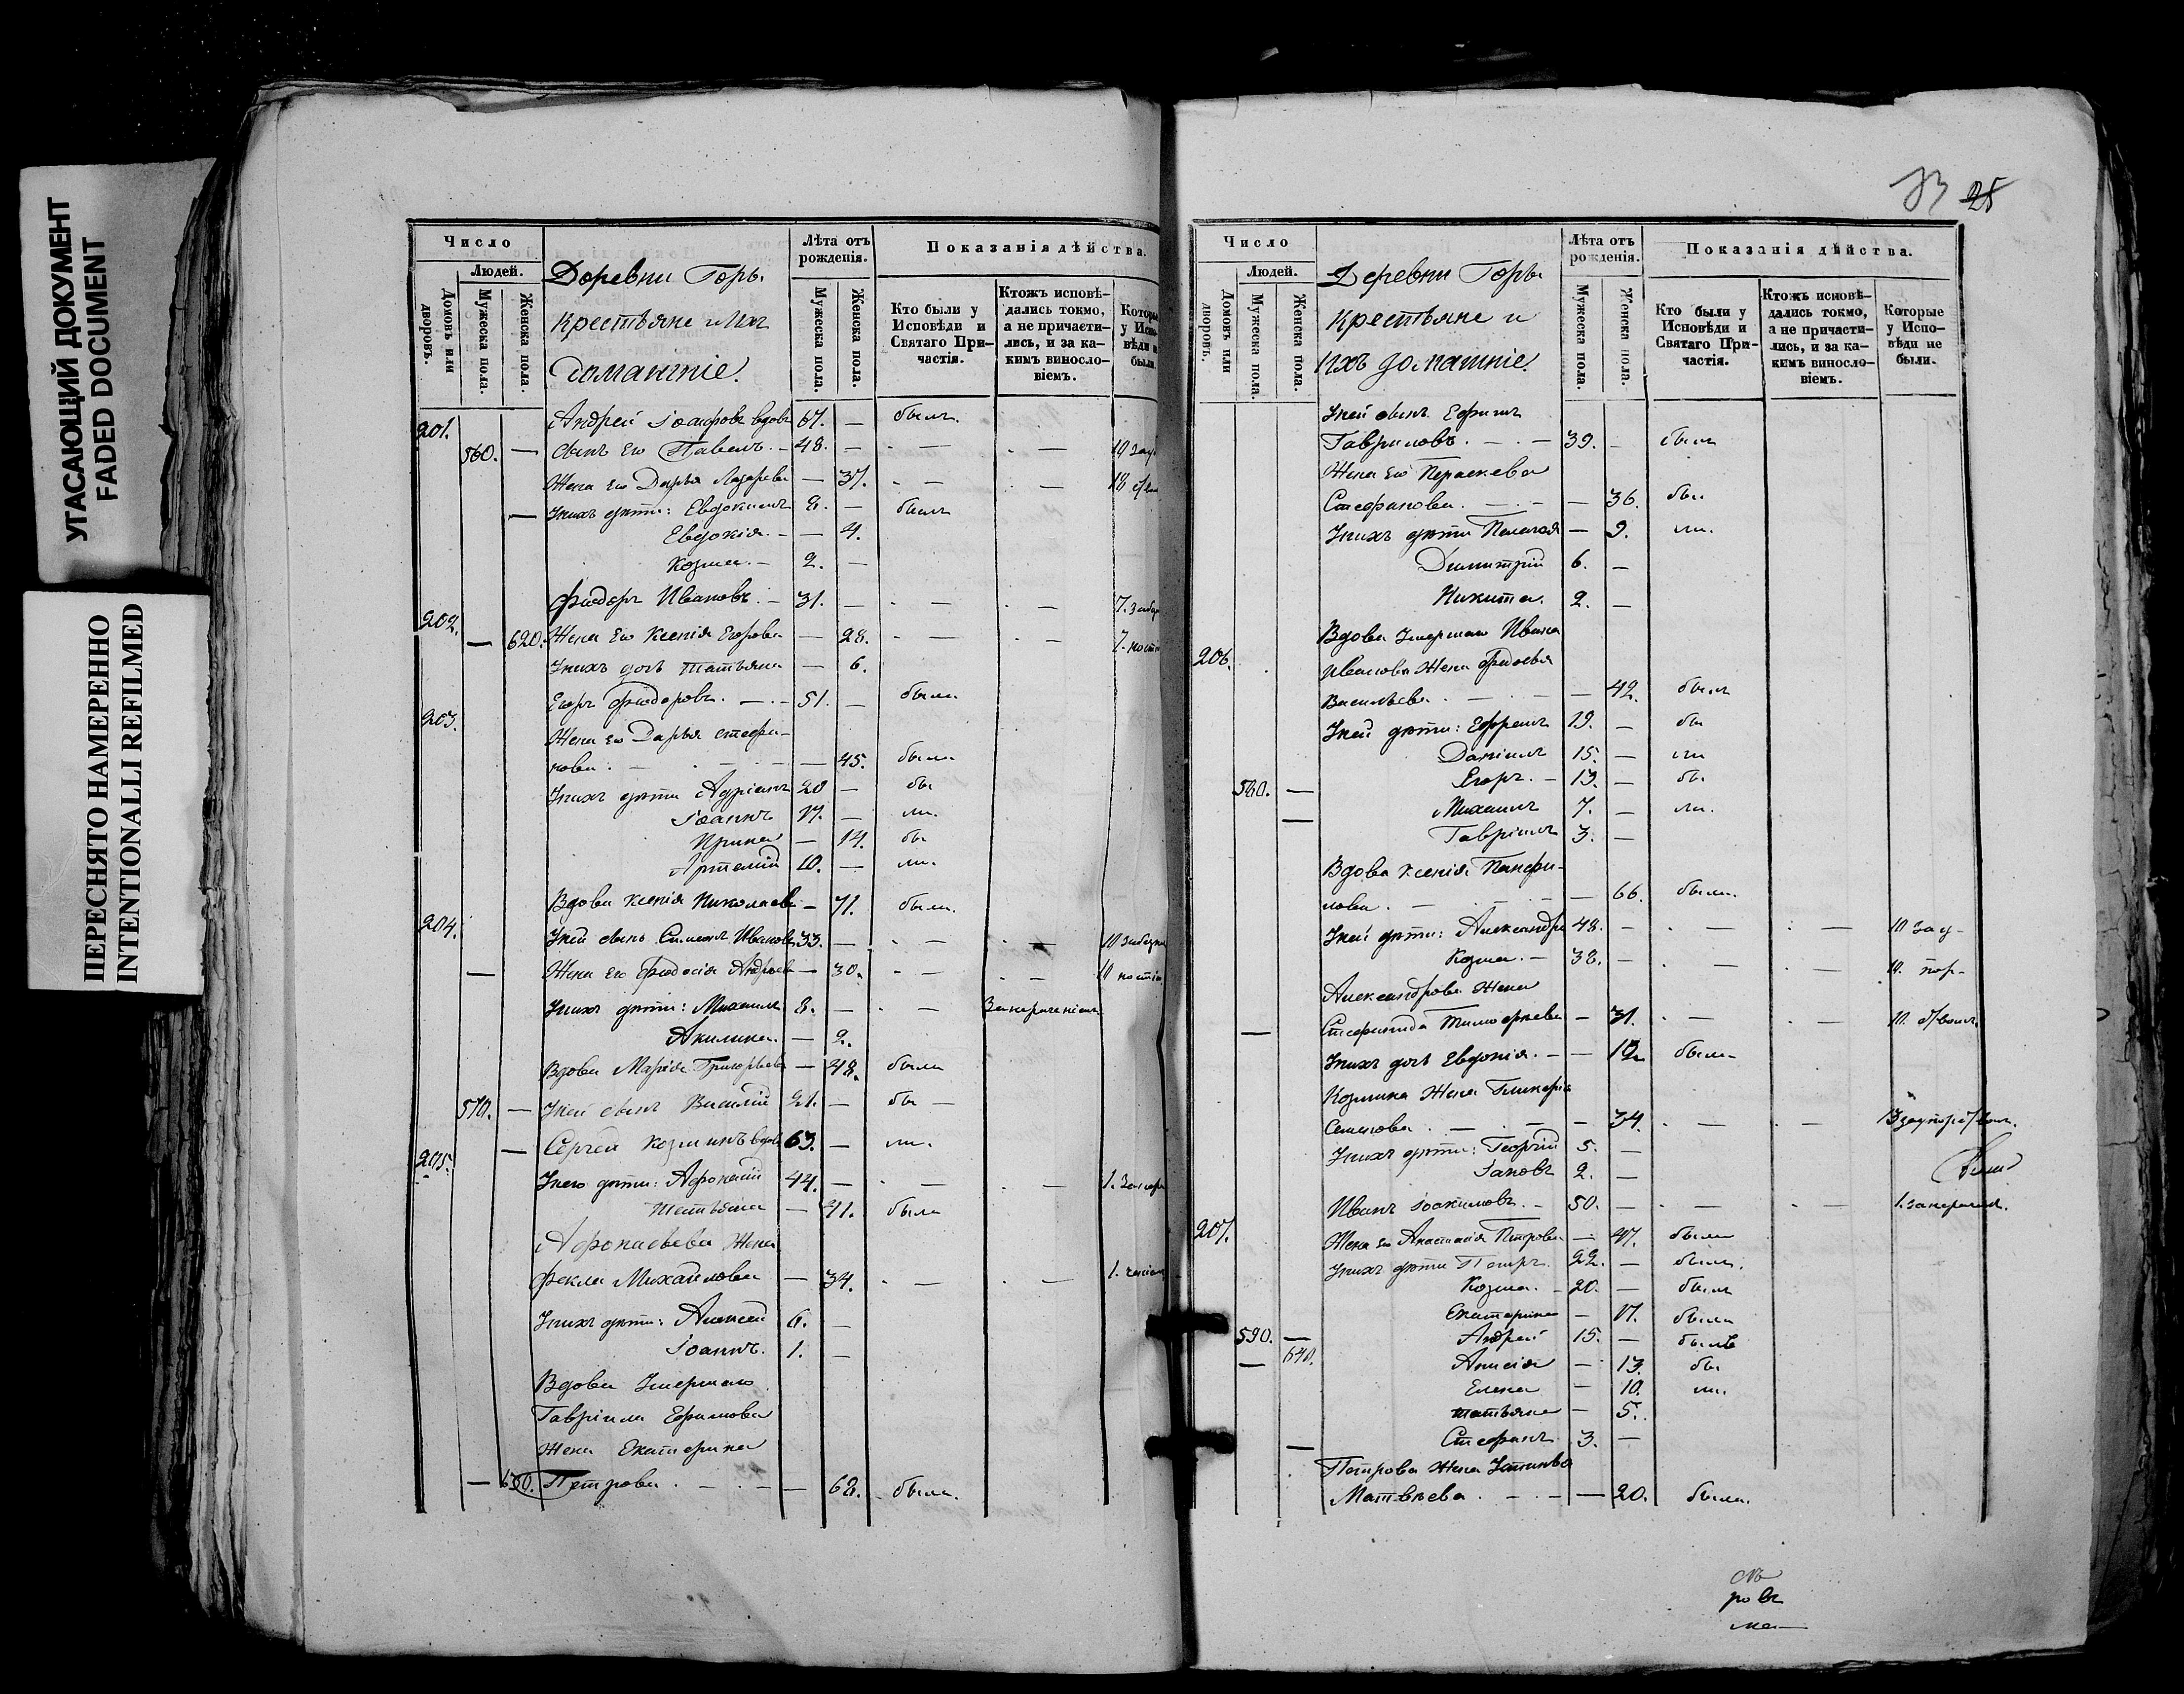 УГАСАЮЩИЙ ДОКУМЕНТ
FADED DOCUMENT
ПЕРЕСНЯТО НАМЕРЕННО
INTENTIONALLI REFILMED
Число
Людей.
Домовъ или дворовъ.
Мужеска пола.
Женска пола.
Деревни Горы
крестьяне и ихъ
домашніе.
Лѣта отъ рожденія.
Мужеска пола.
Женска пола.
Показанія дѣйства.
Кто были у Исповѣди и Святаго Причастія.
Ктожъ исповѣдались токмо, а не причастились, и за какимъ винословіемъ.
201. Андрей вдовъ 67. — былъ
560. — сынъ его Павелъ. — 48. —
Жена его Дарья Лазарева — 37.
— У нихъ дѣти: Евдокимъ 8. — былъ
Евдокія. — — 4.
Козма. — 2. —
202. Ѳиодоръ Ивановъ. — 31. —
— 620. Жена его Ксенія Егорова — 28.
У нихъ дочь Татьяна — 6.
203. Егоръ Ѳиодоровъ. — 51. — были
Жена его Дарья Стефа-
нова. — 45. была
У нихъ дѣти Адріанъ 20 — бы
Іоаннъ 17. — ли.
Ирина — 14. бы
Артемій 10. — ли.
204. Вдова Ксенія Николаева — 71. была.
У ней сынъ Симеонъ Ивановъ 33. —
— Жена его Ѳиодосія Андреева — 30.
У нихъ дѣти: Михаилъ 8. —
Акилина. — 2.
Вдова Марія Григорьева — 48. была
570. — У ней сынъ Василій 21. — бы —
205. — Сергей Козминъ вдовъ 63. — ли.
У него дѣти: Афонасій 44. —
Татьяна — 21. была
Афонасьева Жена
Ѳекла Михайлова — 34.
У нихъ дѣти: Алексей 6. —
Іоаннъ. 1. —
Вдова Умершаго
Гавріила Ефимова
Жена Екатерина
— 630. Петрова. — 68. была.
25
Число
Людей.
Домовъ или дворовъ.
Мужеска пола.
Женска пола.
Деревни Горы
крестьяне и
ихъ домашніе.
Лѣта отъ рожденія.
Мужеска пола.
Женска пола.
Показанія дѣйства.
Кто были у Исповѣди и Святаго Причастія.
Ктожъ исповѣдались токмо, а не причастились, и за какимъ винословіемъ.
Которые у Исповѣди не были.
У ней сынъ Ефимъ
Гавриловъ. — 39. — былъ
Жена его Параскева
Стефанова. — 36. бы
У нихъ дѣти Пелагея — 9. ли.
Димитрій 6. —
Никита. 2. —
206. Вдова Умершаго Ивана
Иванова Жена
Васильева. — 42. была
У ней дѣти: Ефремъ 19. — бы
Даніилъ 15. — ли
580. — Егоръ. — 13. — бы
— Михаилъ 7. — ли.
Гавріилъ 3. —
Вдова Ксенія Панфи-
лова. — 66. была.
У ней дѣти: Александръ 48. —
Козма. — 38. —
Александрова Жена
— Стефанида Тимофеева — 31.
У нихъ дочь Евдокія. — 12 была
Козмина Жена Гликерія
Семенова. — 34.
У нихъ дѣти: Георгій 5. —
Іаковъ 2. —
207. Иванъ Іоакимовъ. — 50. —
Жена его Анастасія Петрова — 47. была
У нихъ дѣти Петръ. 22. — былъ.
Козма. — 20. — былъ
Екатерина — 17. была
590. — Андрей 15. — былъ
— 640. Анисія — 13. бы
Елена — 10. ли.
Татьяна — 5.
— Стефанъ 3. —
Петрова Жена Устинья
Матвѣева. — 20. была.